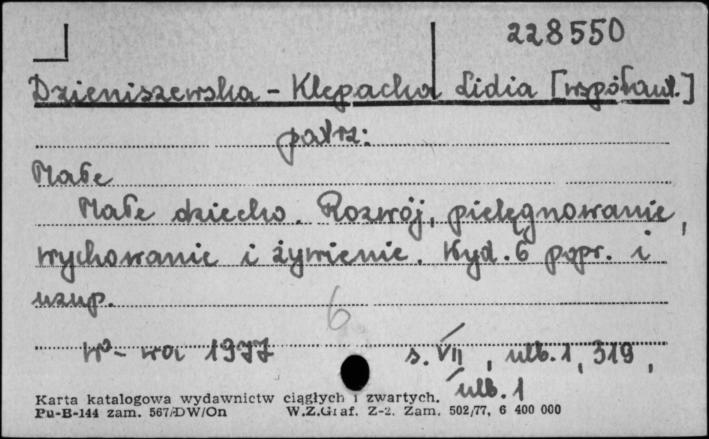 228550
Dzieniszewska-Klepacka Lidia [współaut.]
patrz:
Małe
Małe dziecko. Rozwój, pielęgnowanie,
wychowanie i żywienie. Wyd. 6 popr. i
uzup.
6
W-wa 1977 s. VII, nlb. 1, 319,
nlb. 1
Karta katalogowa wydawnictw ciągłych i zwartych.
Pu-B-144 zam. 567/DW/On W.Z.Graf. Z-2. Zam. 502/77, 6 400 000